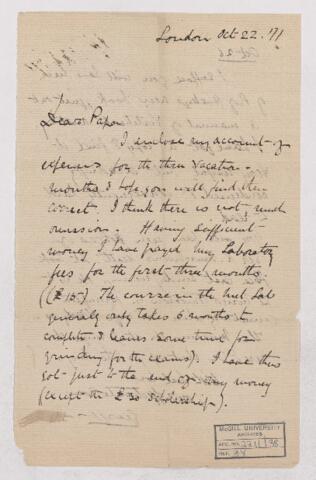 London Oct 22. '71
Oct 26
Dear Papa
I enclose my account of
expenses for the three vacation
months I hope you will find them
correct. I think there is not much
omission. Having sufficient
money I have payed my Laboratory
fees for the first three months
(£10) The course in the Lab
generally only takes 6 months to
complete & leaves some time for
grinding for the exams). I have thus
got just to the end of my money
(except the £30 Scholarship).
McGILL UNIVERSITY
ARCHIVES
ACC. NO.
REF.